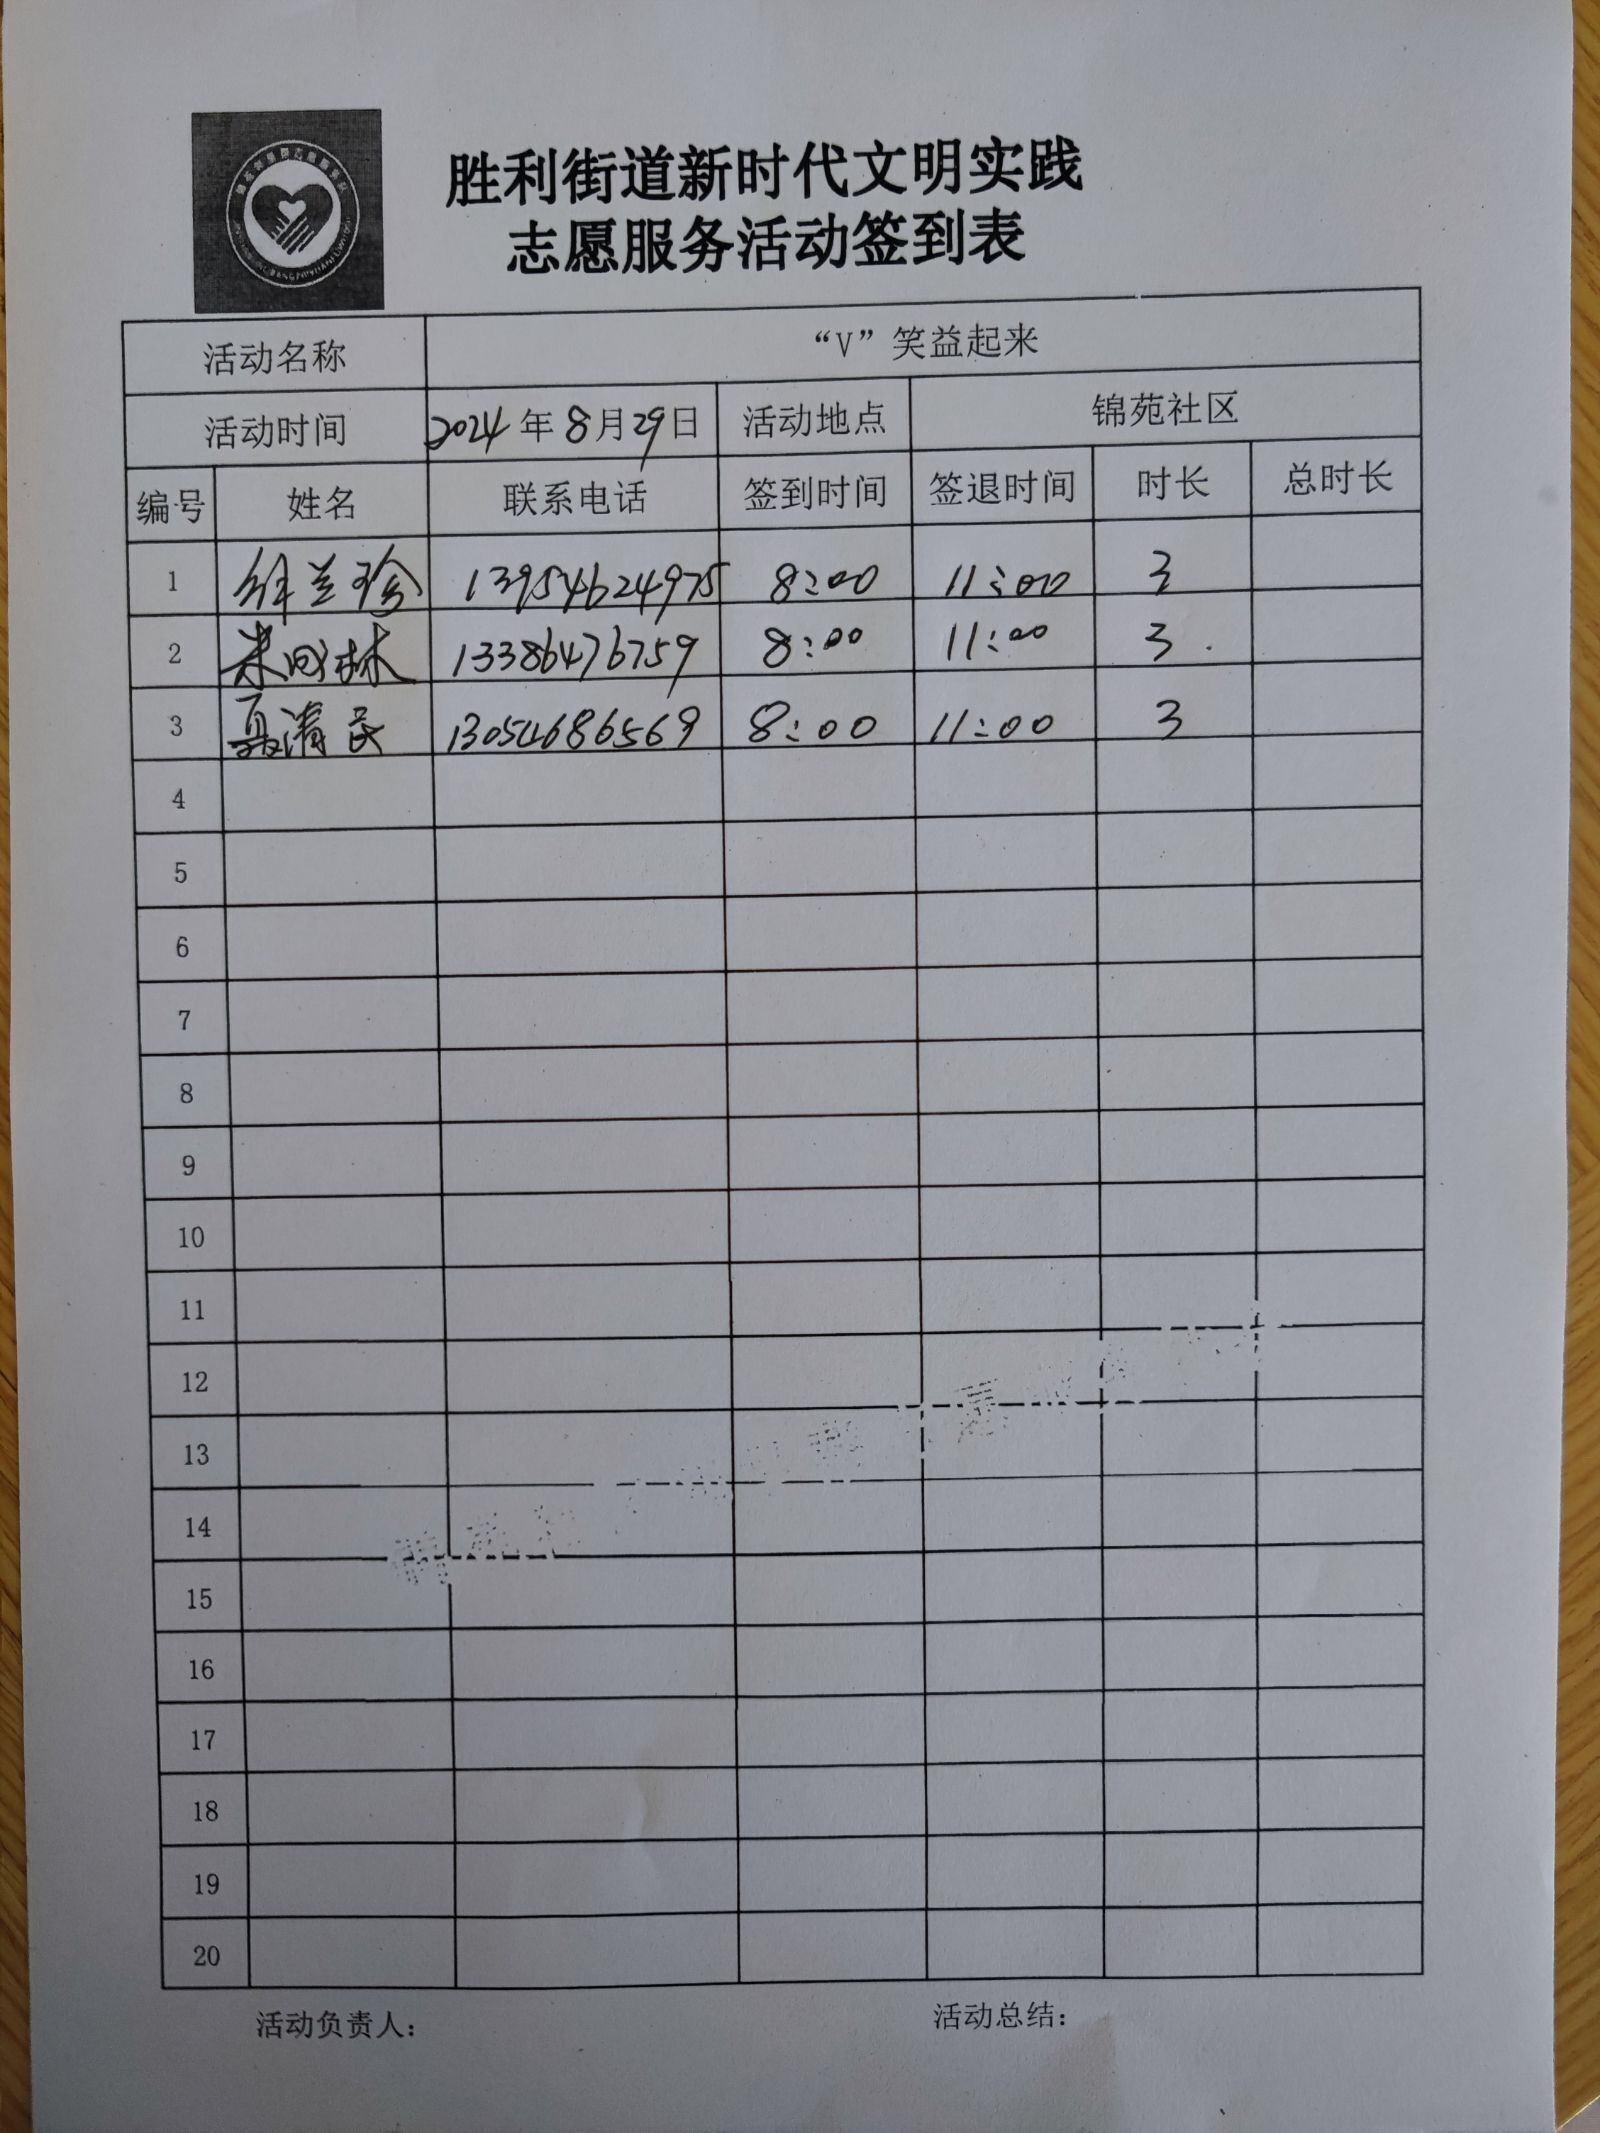 胜利街道新时代文明实践
志愿服务活动签到表
活动名称 “V”笑益起来
活动时间 2024年8月29日 活动地点 锦苑社区
编号 姓名 联系电话 签到时间 签退时间 时长 总时长
1 徐兰珍 13954624975 8:00 11:00 3
2 林 13386476759 8:00 11:00 3
3 聂清民 13054686569 8:00 11:00 3
4
5
6
7
8
9
10
11
12
13
14
15
16
17
18
19
20
活动负责人: 活动总结: